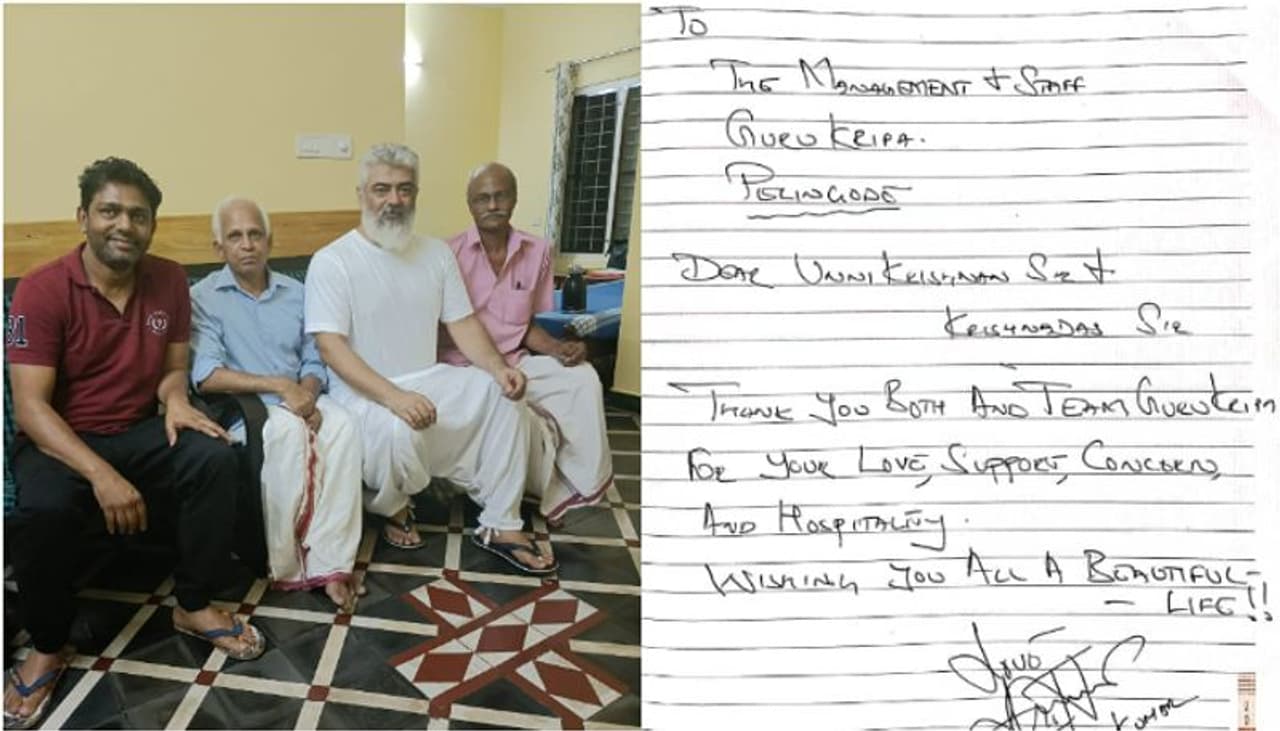 31
To
The Management & Staff
Guru Kripa.
Peringode
Dear Unni Krishnan Sir &
Krishnadas Sir
Thank you Both And Team Guru Kripa
For your Love, Support, Concern,
And Hospitality.
Wishing you All A Beautiful -
- Life!!
Love
Kumar